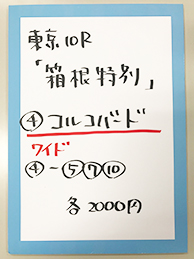 東京10R
「箱根特別」
④コルコバード
ワイド
④-⑤⑦⑩
各2000円